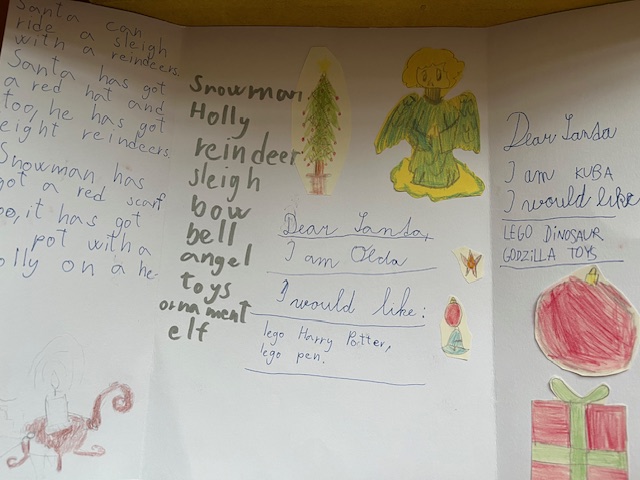 Santa can
ride a sleigh
with a reindeers.
Santa has got
a red hat and
too, he has got
eight reindeers.
Snowman has
got a red scarf
too, it has got
pot with a
holly on a he
Snowman
Holly
reindeer
sleigh
bow
bell
angel
toys
ornament
elf
Dear Santa,
I am Olda
I would like:
lego Harry Potter,
lego pen.
Dear Santa
I am KUBA
I would like
LEGO DINOSAUR
GODZILLA TOYS